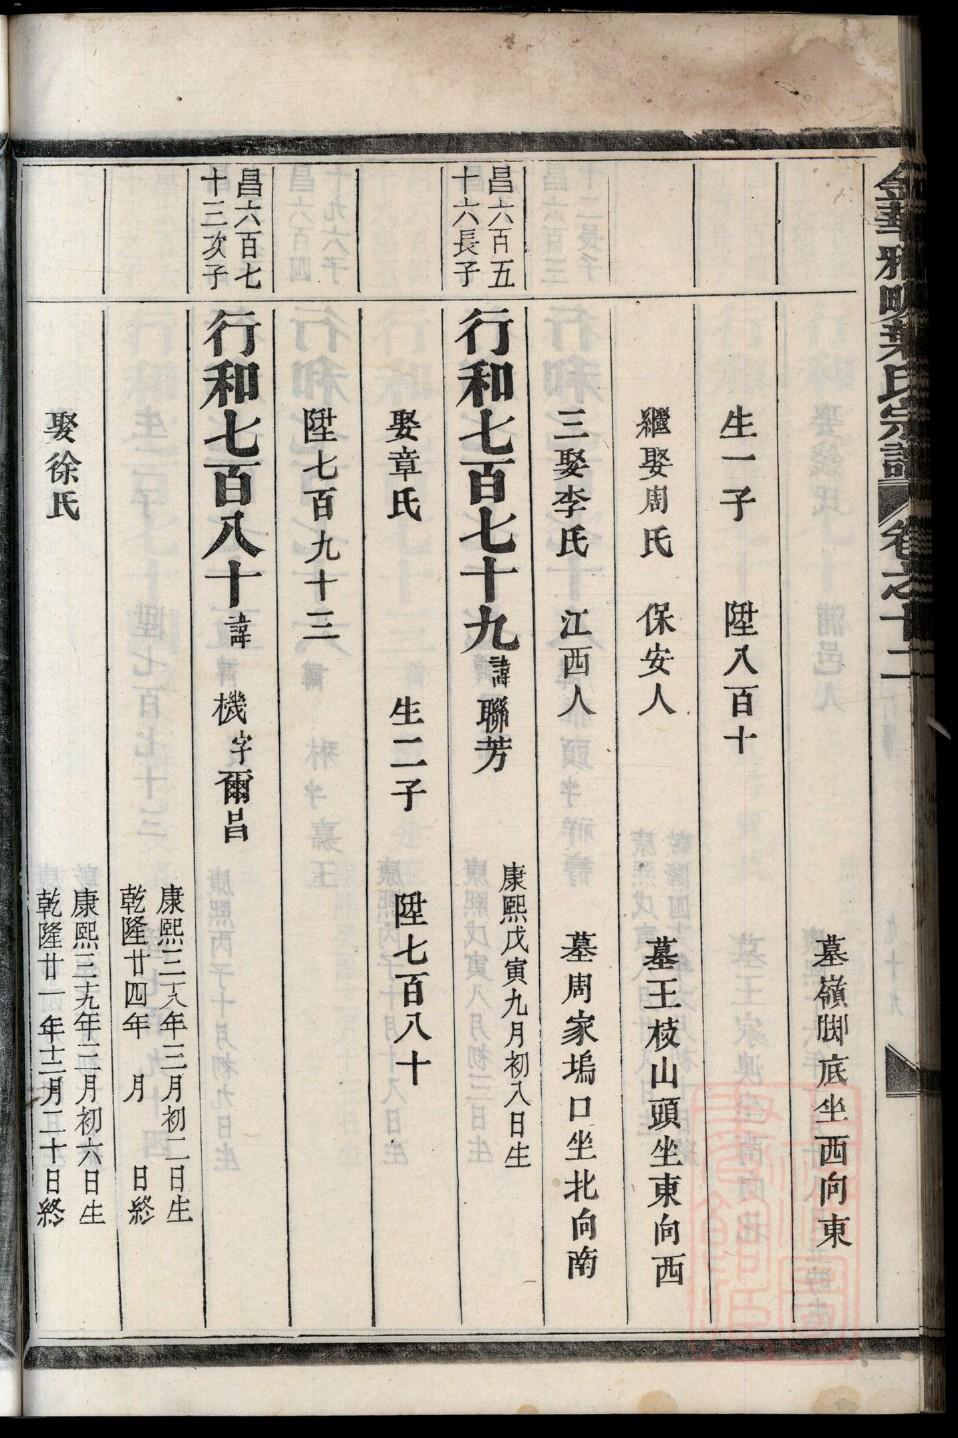 金華雅畈葉氏宗譜 卷之十二
墓嶺脚底坐西向東
生一子 陞八百十
繼娶周氏 保安人 墓王枝山頭坐東向西
三娶李氏 江西人 墓周家塢口坐北向南
昌六百五
十六長子
行和七百七十九 諱聯芳 康熙戊寅九月初八日生
娶章氏 生二子 陞七百八十
陞七百九十三
昌六百七
十三次子
行和七百八十 諱機 字爾昌
康熙三十八年三月初二日生
乾隆廿四年 月 日終
娶徐氏
康熙三十九年二月初六日生
乾隆廿一年十二月二十日終